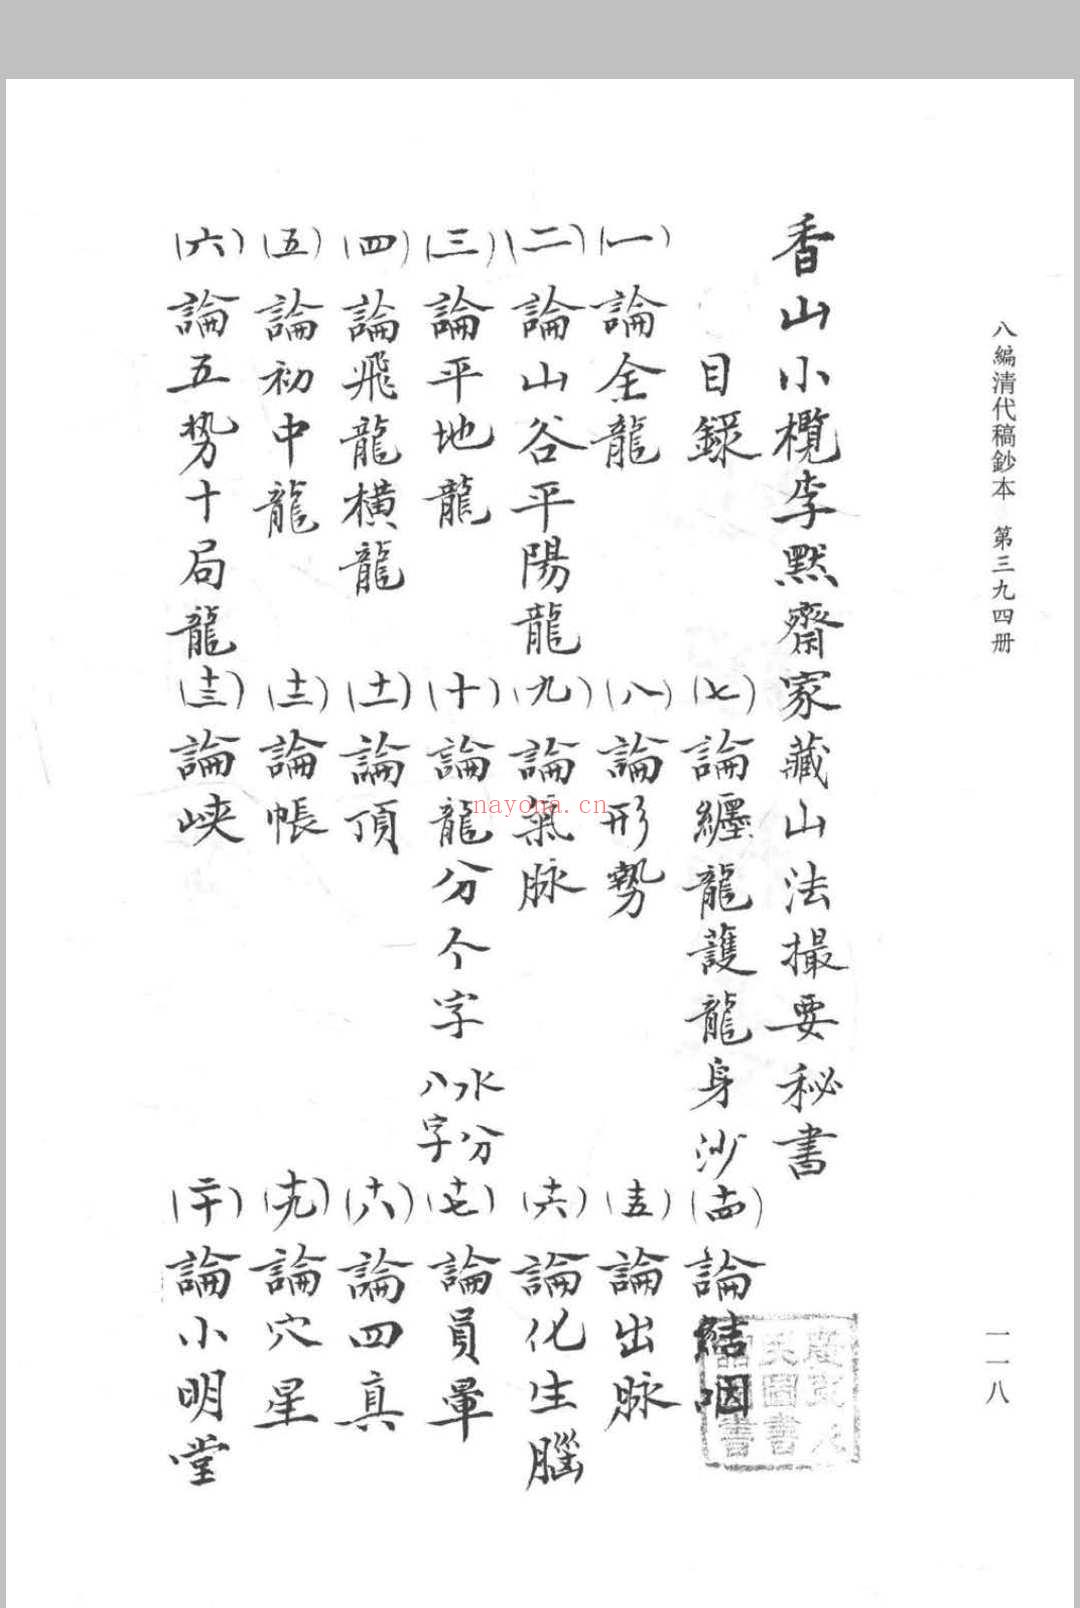 八編清代稿鈔本 第三九四冊
一一八
香山小欖李默齋家藏山法撮要秘書
目錄
(一)論全龍
(二)論山谷平陽龍
(三)論平地龍
(四)論飛龍橫龍
(五)論初中龍
(六)論五势十局龍
(七)論纏龍護龍身沙
(八)論形勢
(九)論氣脉
(十)論龍分个字 水分八字
(十一)論頂
(十二)論帳
(十三)論峡
(十四)論結咽
(十五)論出脉
(十六)論化生腦
(十七)論員暈
(十八)論四真
(十九)論穴星
(二十)論小明堂
nayona.cn